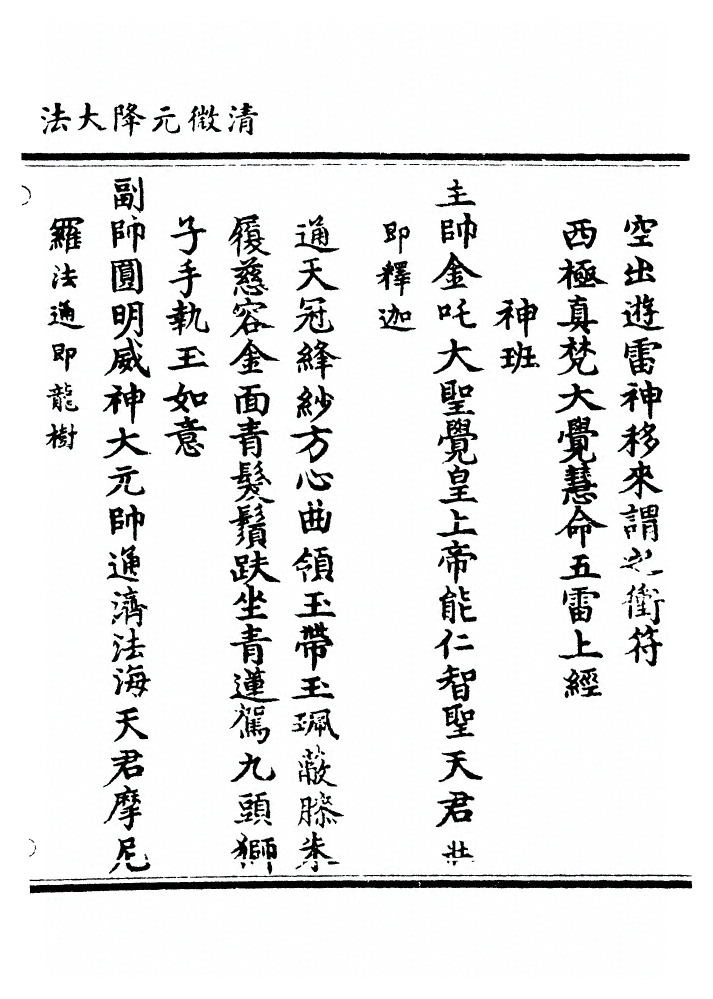 清微元降大法
空出遊雷神移來謂之衝符
西極真梵大覺慧命五雷上經
神班
主帥金吒大聖覺皇上帝能仁智聖天君
即釋迦
通天冠絳紗方心曲領玉帶玉珮蔽膝朱
履慈容金面青髮鬚趺坐青蓮駕九頭獅
子手執玉如意
副帥圓明威神大元帥通濟法海天君摩尼
羅法通即龍樹